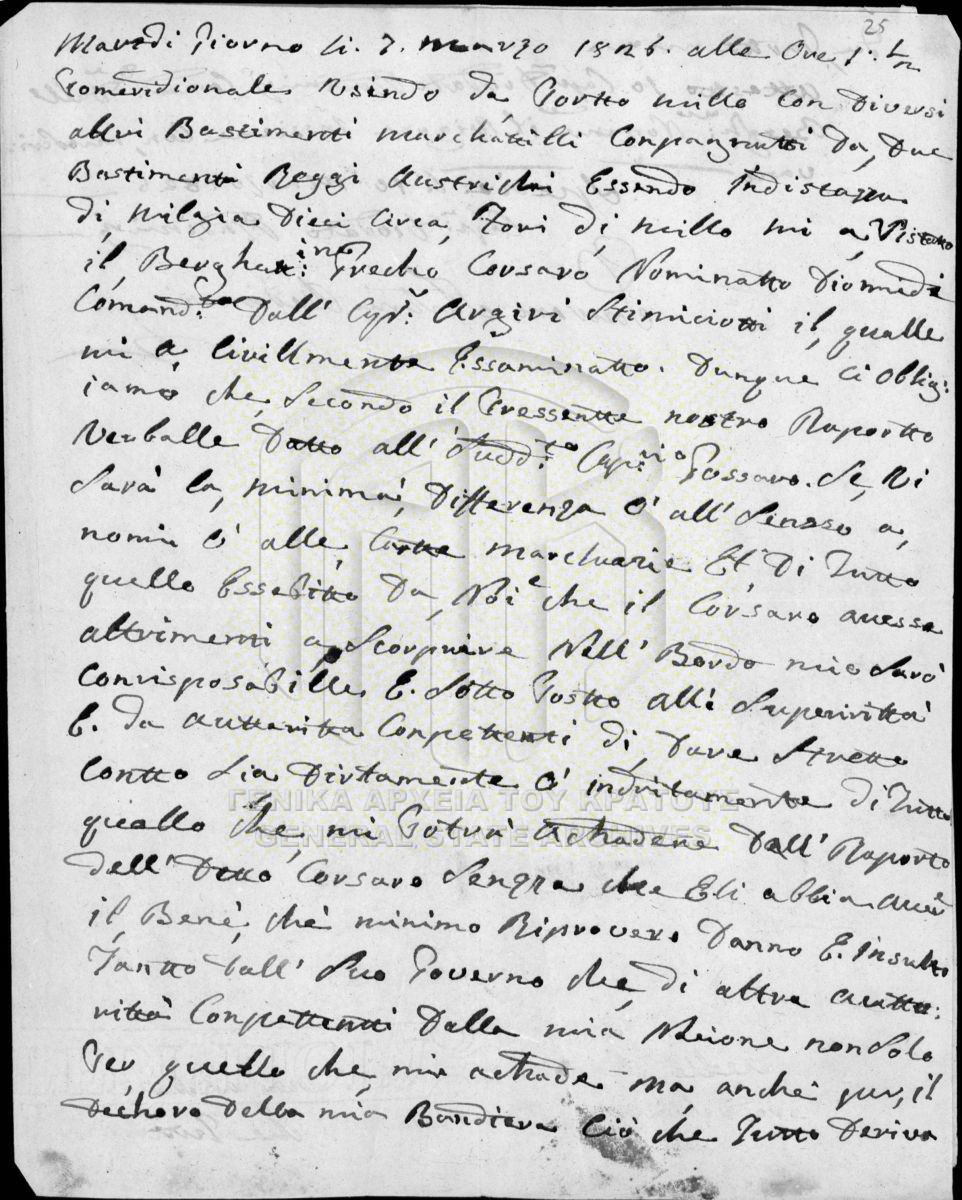 25
Maredi Giorno li. 7. marzo 1826. alle Ore 1. 1/2
Pomeridionale Usendo da, Portto millo Con Diversi
altri Bastimenti marchattilli Conpagniatti Da, Due
Bastimenti Reggi Austrichi Essendo Indistanza
di, milgia Dieci Circa, Fori di, millo mi, a, Vistatto
il, Berghantino: Grecho Corsaro Nominatto Diomiedi
Comand:to Dall' Cap:o Argiri Stinniciotti il, qualle
mi a, Civillmente Essaminatto. Dunque Ci Oblig:
iamo che, Secondo il Pressentte nostro Raportto
Verballe Datto all' Sudd:to Cap:nio Corsaro. Se, Vi
Sarà la, minima, Differenza ò all' Senso a,
nomi ò alle, Carte marcharie Et, Di Tutto
quello Essebitto Da, Noi è che il Corsaro avesse
altrimenti a, Scorprire Nell' Bordo mio Sarò
Corrisposabille E. Sotto Posto alli Superiritta
E. da auttoritta Conpettenti di, Dare Stretto
Contto Sia Dirtamente ò indiritamente di Tutto
quello che, mi Potrà Achadere Dall' Raporto
dell' Detto Corsaro Senzza che Eli abbia auer
il, Bene, che minimo Riprovero Danno E. Insulto
Tantto Dall' Suo Governo che, di altre autto:
rittà Conpettentti Dalla mia Nizione non Solo
Per, quello che, mi achade ma anche per, il
Dechoro Della mia Bandiera Ciò che Tutto Deriva
ΓΕΝΙΚΑ ΑΡΧΕΙΑ ΤΟΥ ΚΡΑΤΟΥΣ
GENERAL STATE ARCHIVES